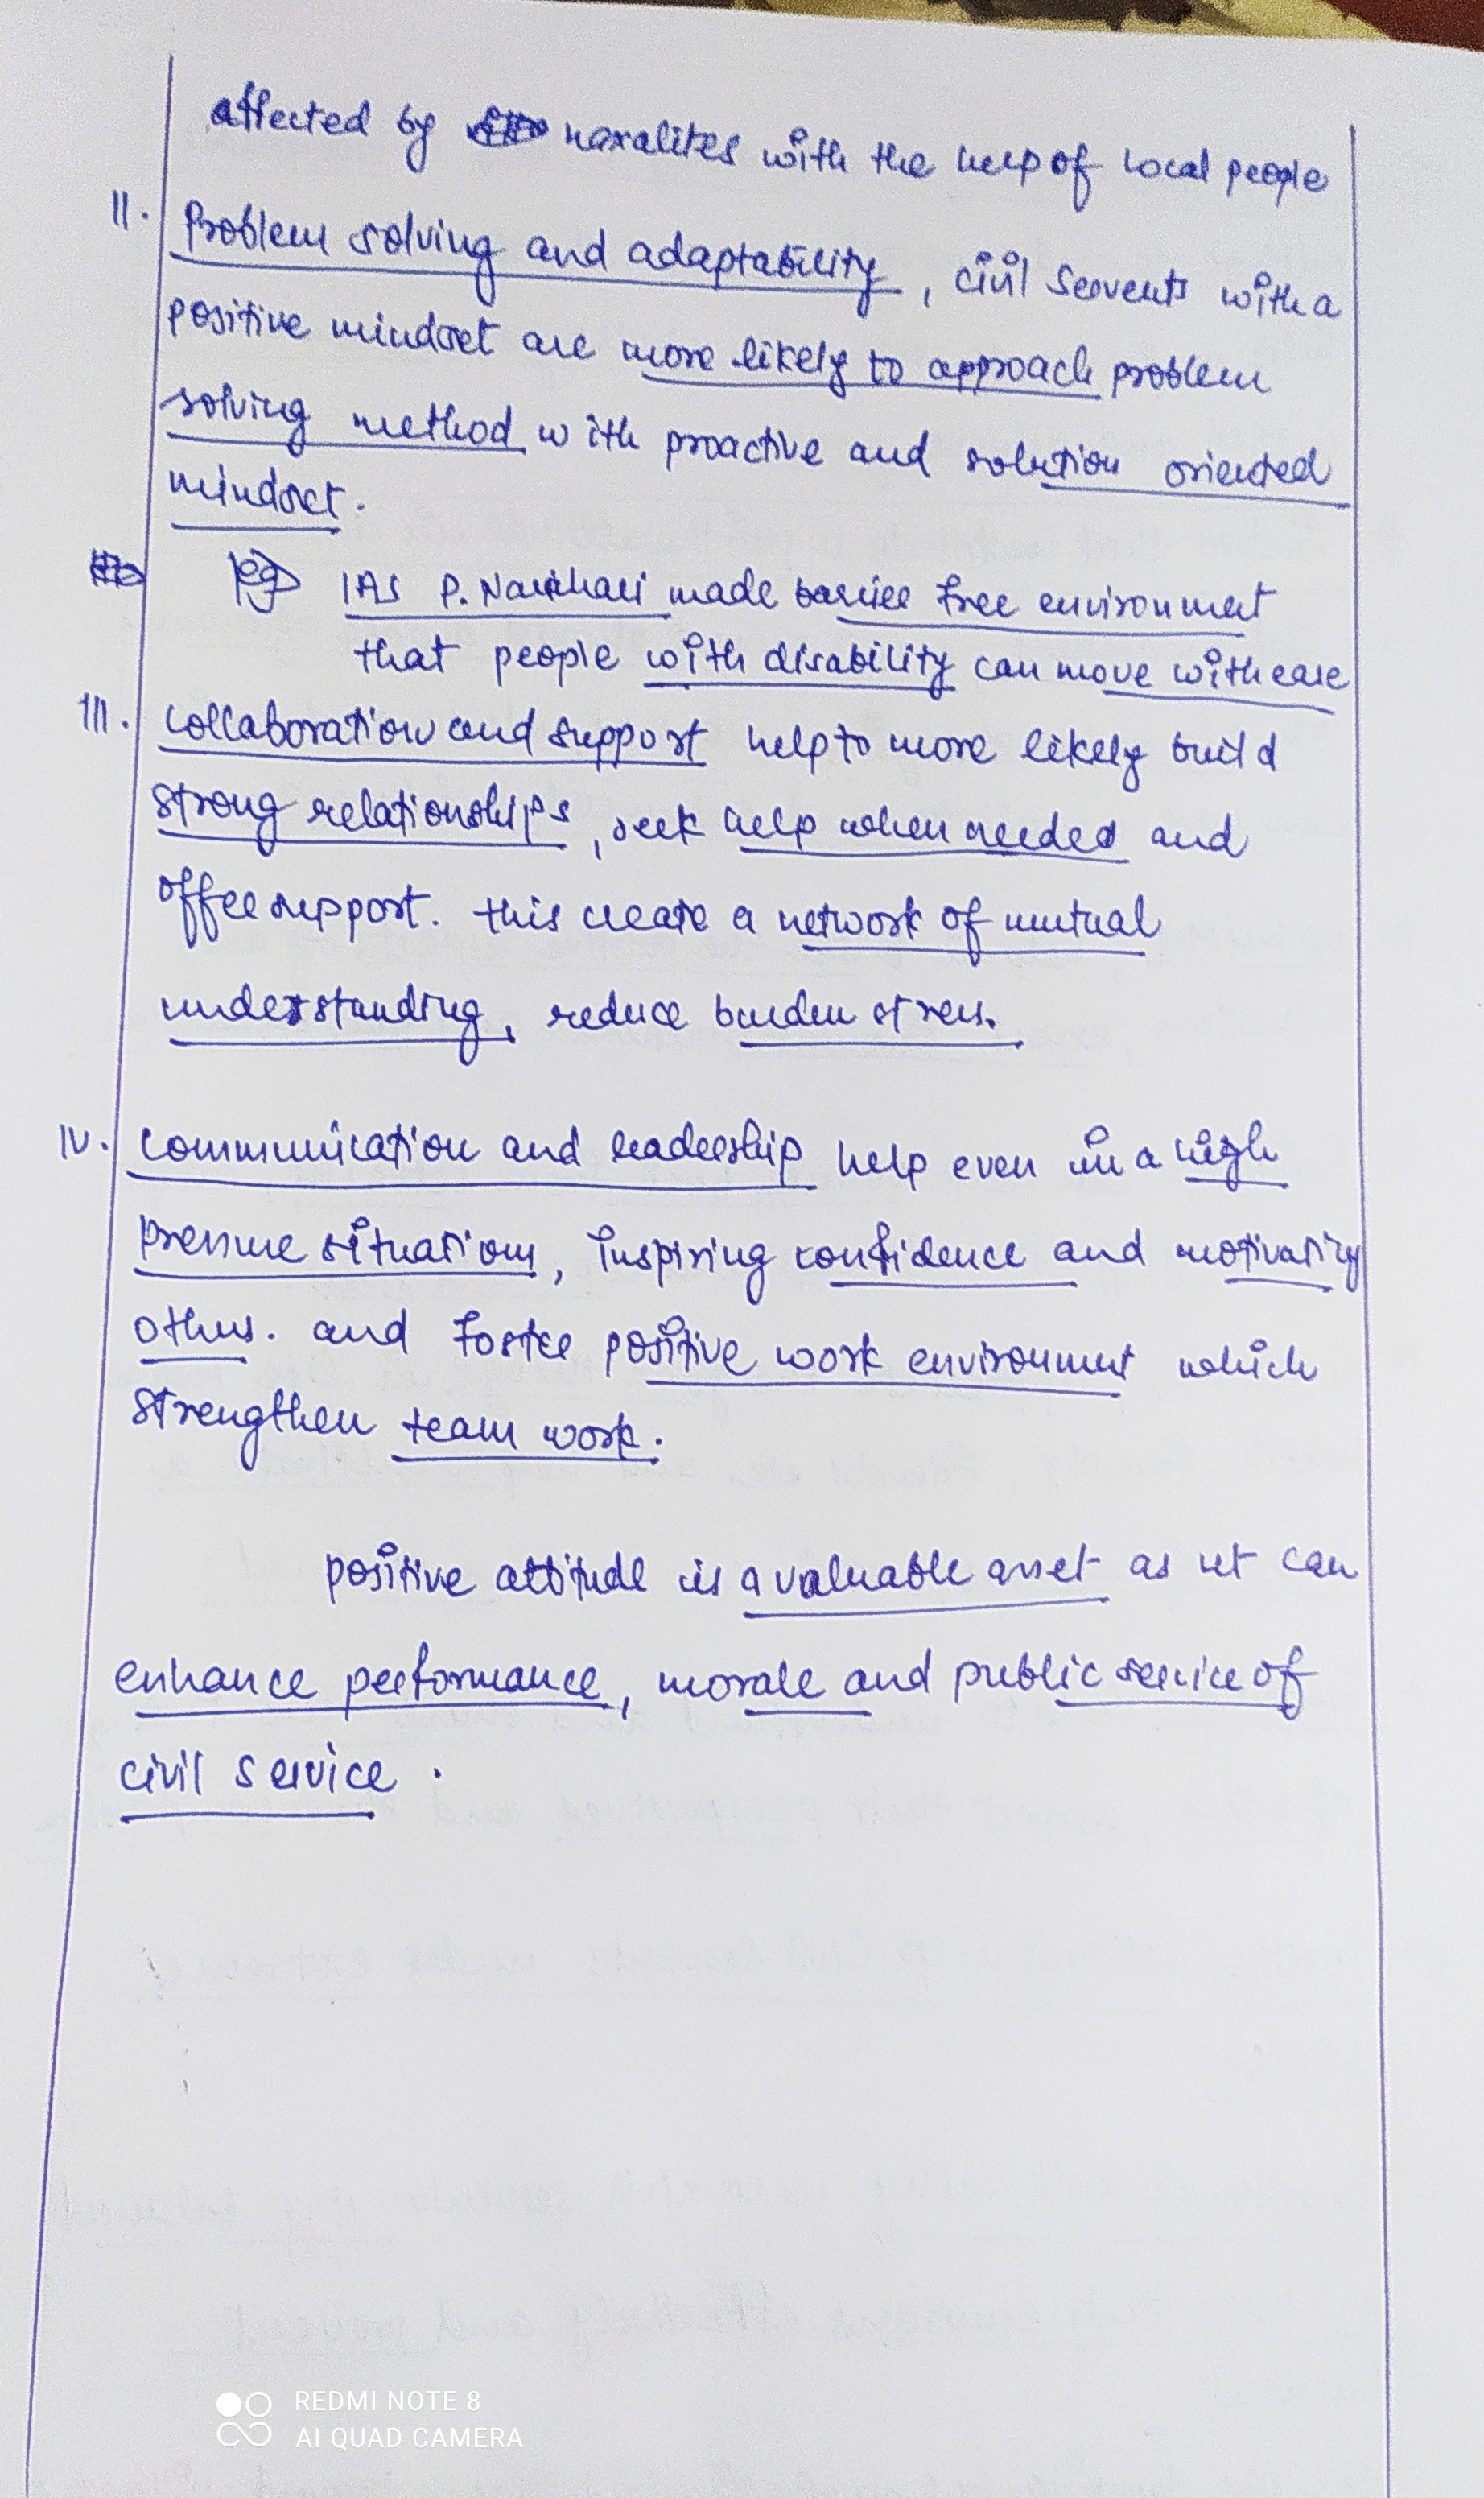 affected by naxalites with the help of local people
II. Problem solving and adaptability, civil servents with a
positive mindset are more likely to approach problem
solving method with proactive and solution oriented
mindset.
eg IAS P. Narihari made barrier free environment
that people with disability can move with ease
III. collaboration and support help to more likely build
strong relationships, seek help when needed and
offer support. this create a network of mutual
understanding, reduce burden stress.
IV. communication and leadership help even in a high
pressure situations, inspiring confidence and motivating
others. and foster positive work environment which
strengthen team work.
positive attitude is a valuable asset as it can
enhance performance, morale and public service of
civil service.
REDMI NOTE 8
AI QUAD CAMERA